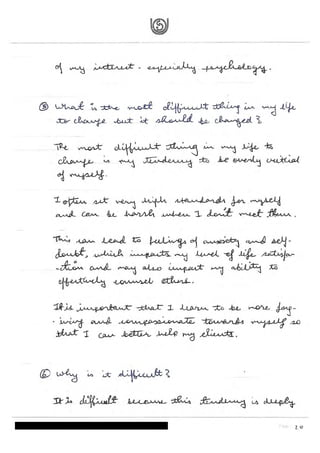 of my interest - especially psychology.
⑤ What is the most difficult thing in my life
to change but it should be changed?
The most difficult thing in my life to
change is my tendency to be overly critical
of myself.
I often set very high standards for myself
and can be harsh when I don't meet them.
This can lead to feelings of anxiety and self-
doubt, which impacts my level of life satisfa-
-ction and may also impact my ability to
effectively counsel others.
It is important that I learn to be more forg-
-iving and compassionate towards myself so
that I can better help my clients.
⑥ Why is it difficult?
It is difficult because this tendency is deeply